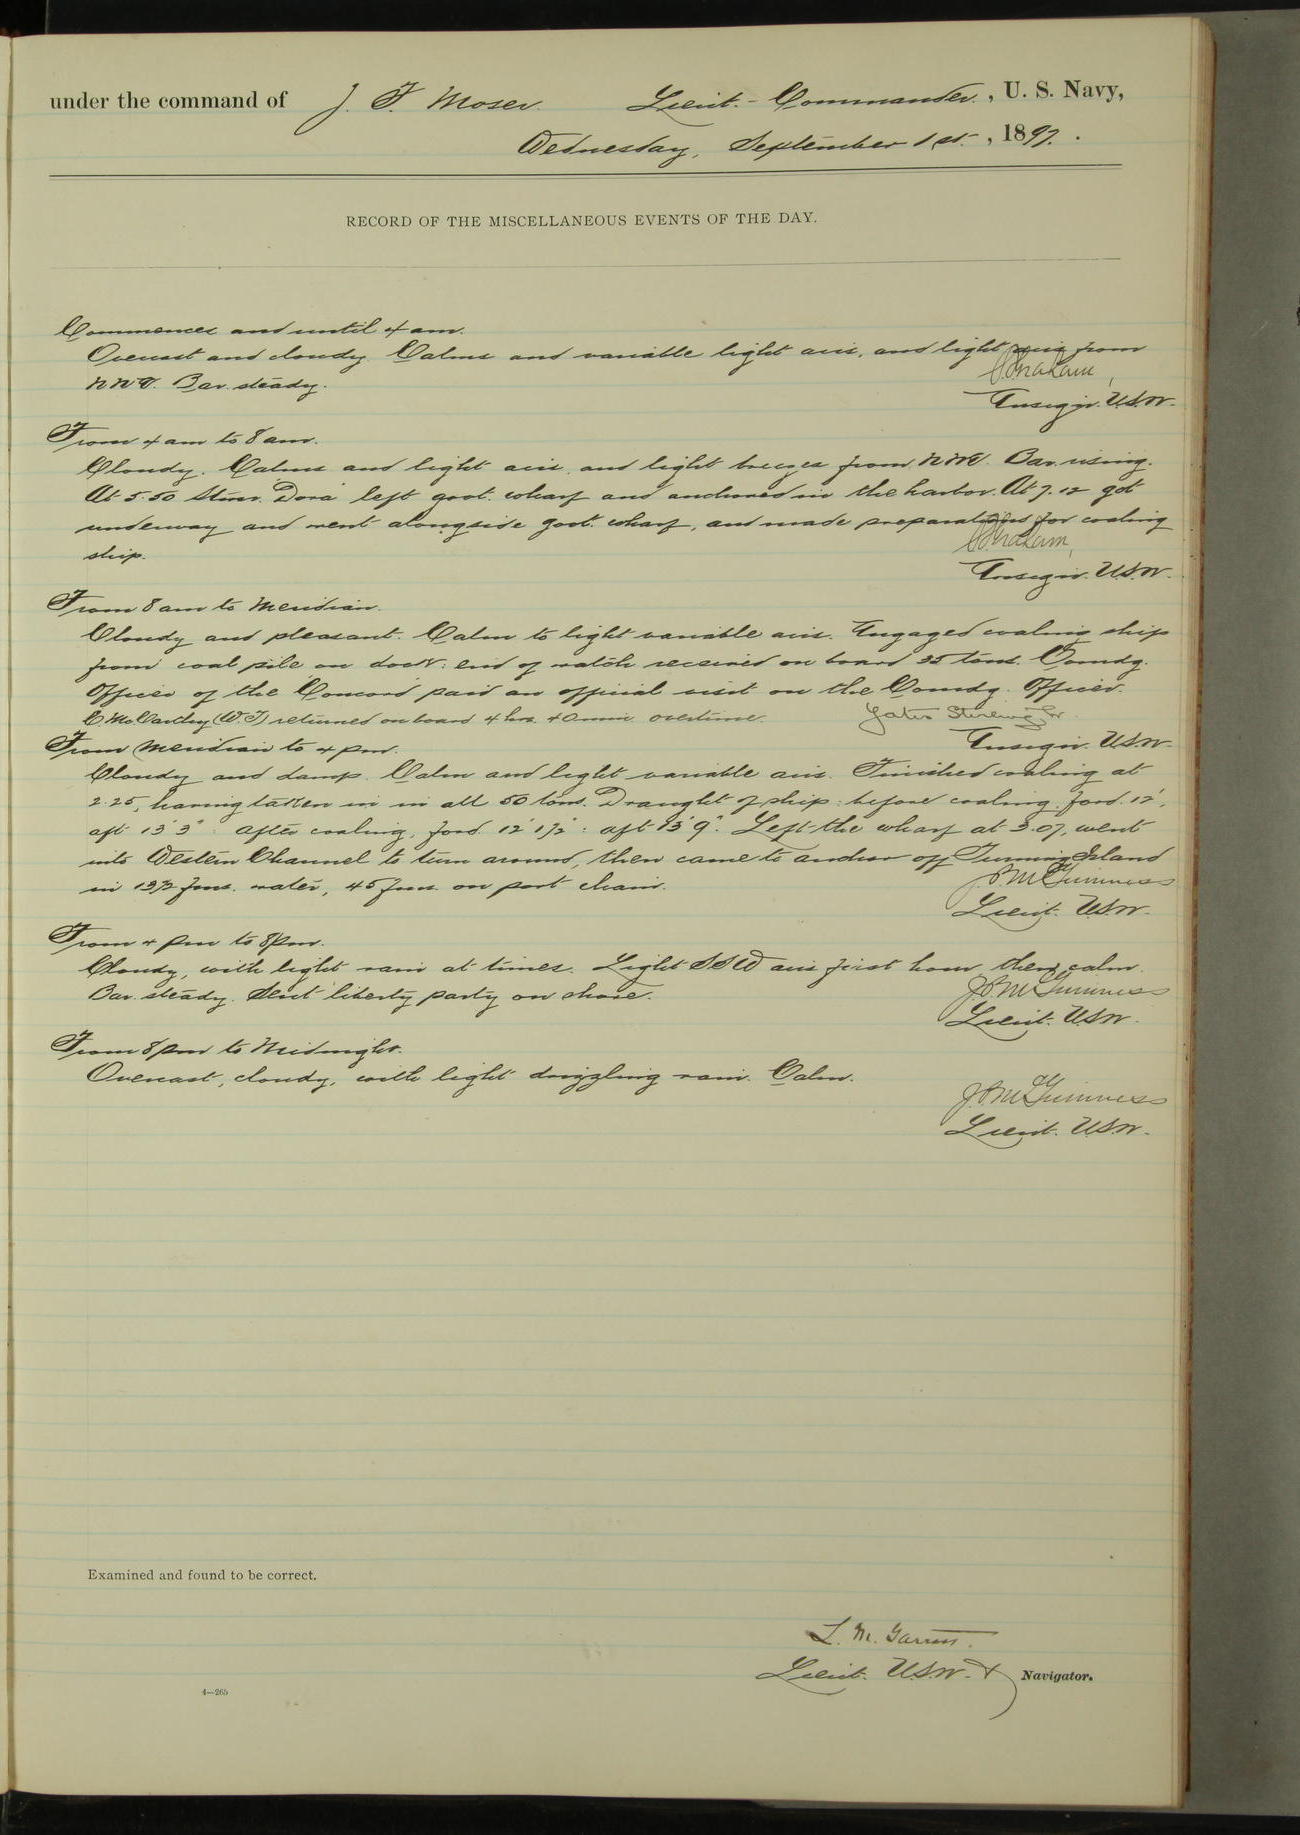 under the command of J. F. Moser. Lieut.-Commander, U. S. Navy,
Wednesday, September 1st., 1897.
RECORD OF THE MISCELLANEOUS EVENTS OF THE DAY.
Commences and until 4 am.
Overcast and cloudy. Calms and variable light airs, and light airs from
NNE. Bar. steady.
Ensign. U.S.N.
From 4 am to 8 am.
Cloudy. Calms and light airs, and light breezes from NNE. Bar. rising.
At 5.50 Stmr. "Dora" left govt. wharf and anchored in the harbor. At 7.12 got
underway and went alongside govt. wharf, and made preparations for coaling
ship.
Ensign. U.S.N.
From 8 am to Meridian.
Cloudy and pleasant. Calm to light variable airs. Engaged coaling ship
from coal pile on dock: end of watch received on board 35 tons. Comdg.
Officer of the "Concord" paid an official visit on the Comdg. Officer.
C. McCarthy (W.T.) returned on board 4 hrs. 40 min. overtime.
Yates Stirling Jr.
Ensign. U.S.N.
From Meridian to 4 pm.
Cloudy and damp. Calm and light variable airs. Finished coaling at
2.25, having taken in in all 50 tons. Draught of ship: before coaling, ford. 12',
aft 13' 3": after coaling, ford. 12' 1 1/2": aft 13' 9". Left the wharf at 3.07, went
into Western Channel to turn around, then came to anchor off Island
in 13 1/2 fms. water, 45 fms. on port chain.
J. P. McGuinness
Lieut. U.S.N.
From 4 pm to 8 pm.
Cloudy, with light rain at times. Light SSW airs first hour then calm.
Bar. steady. Sent liberty party on shore.
J. P. McGuinness
Lieut. U.S.N.
From 8 pm to Midnight.
Overcast, cloudy, with light drizzling rain. Calm.
J. P. McGuinness
Lieut. U.S.N.
Examined and found to be correct.
L. M. Garrett.
Lieut. U.S.N. & Navigator.
4—265